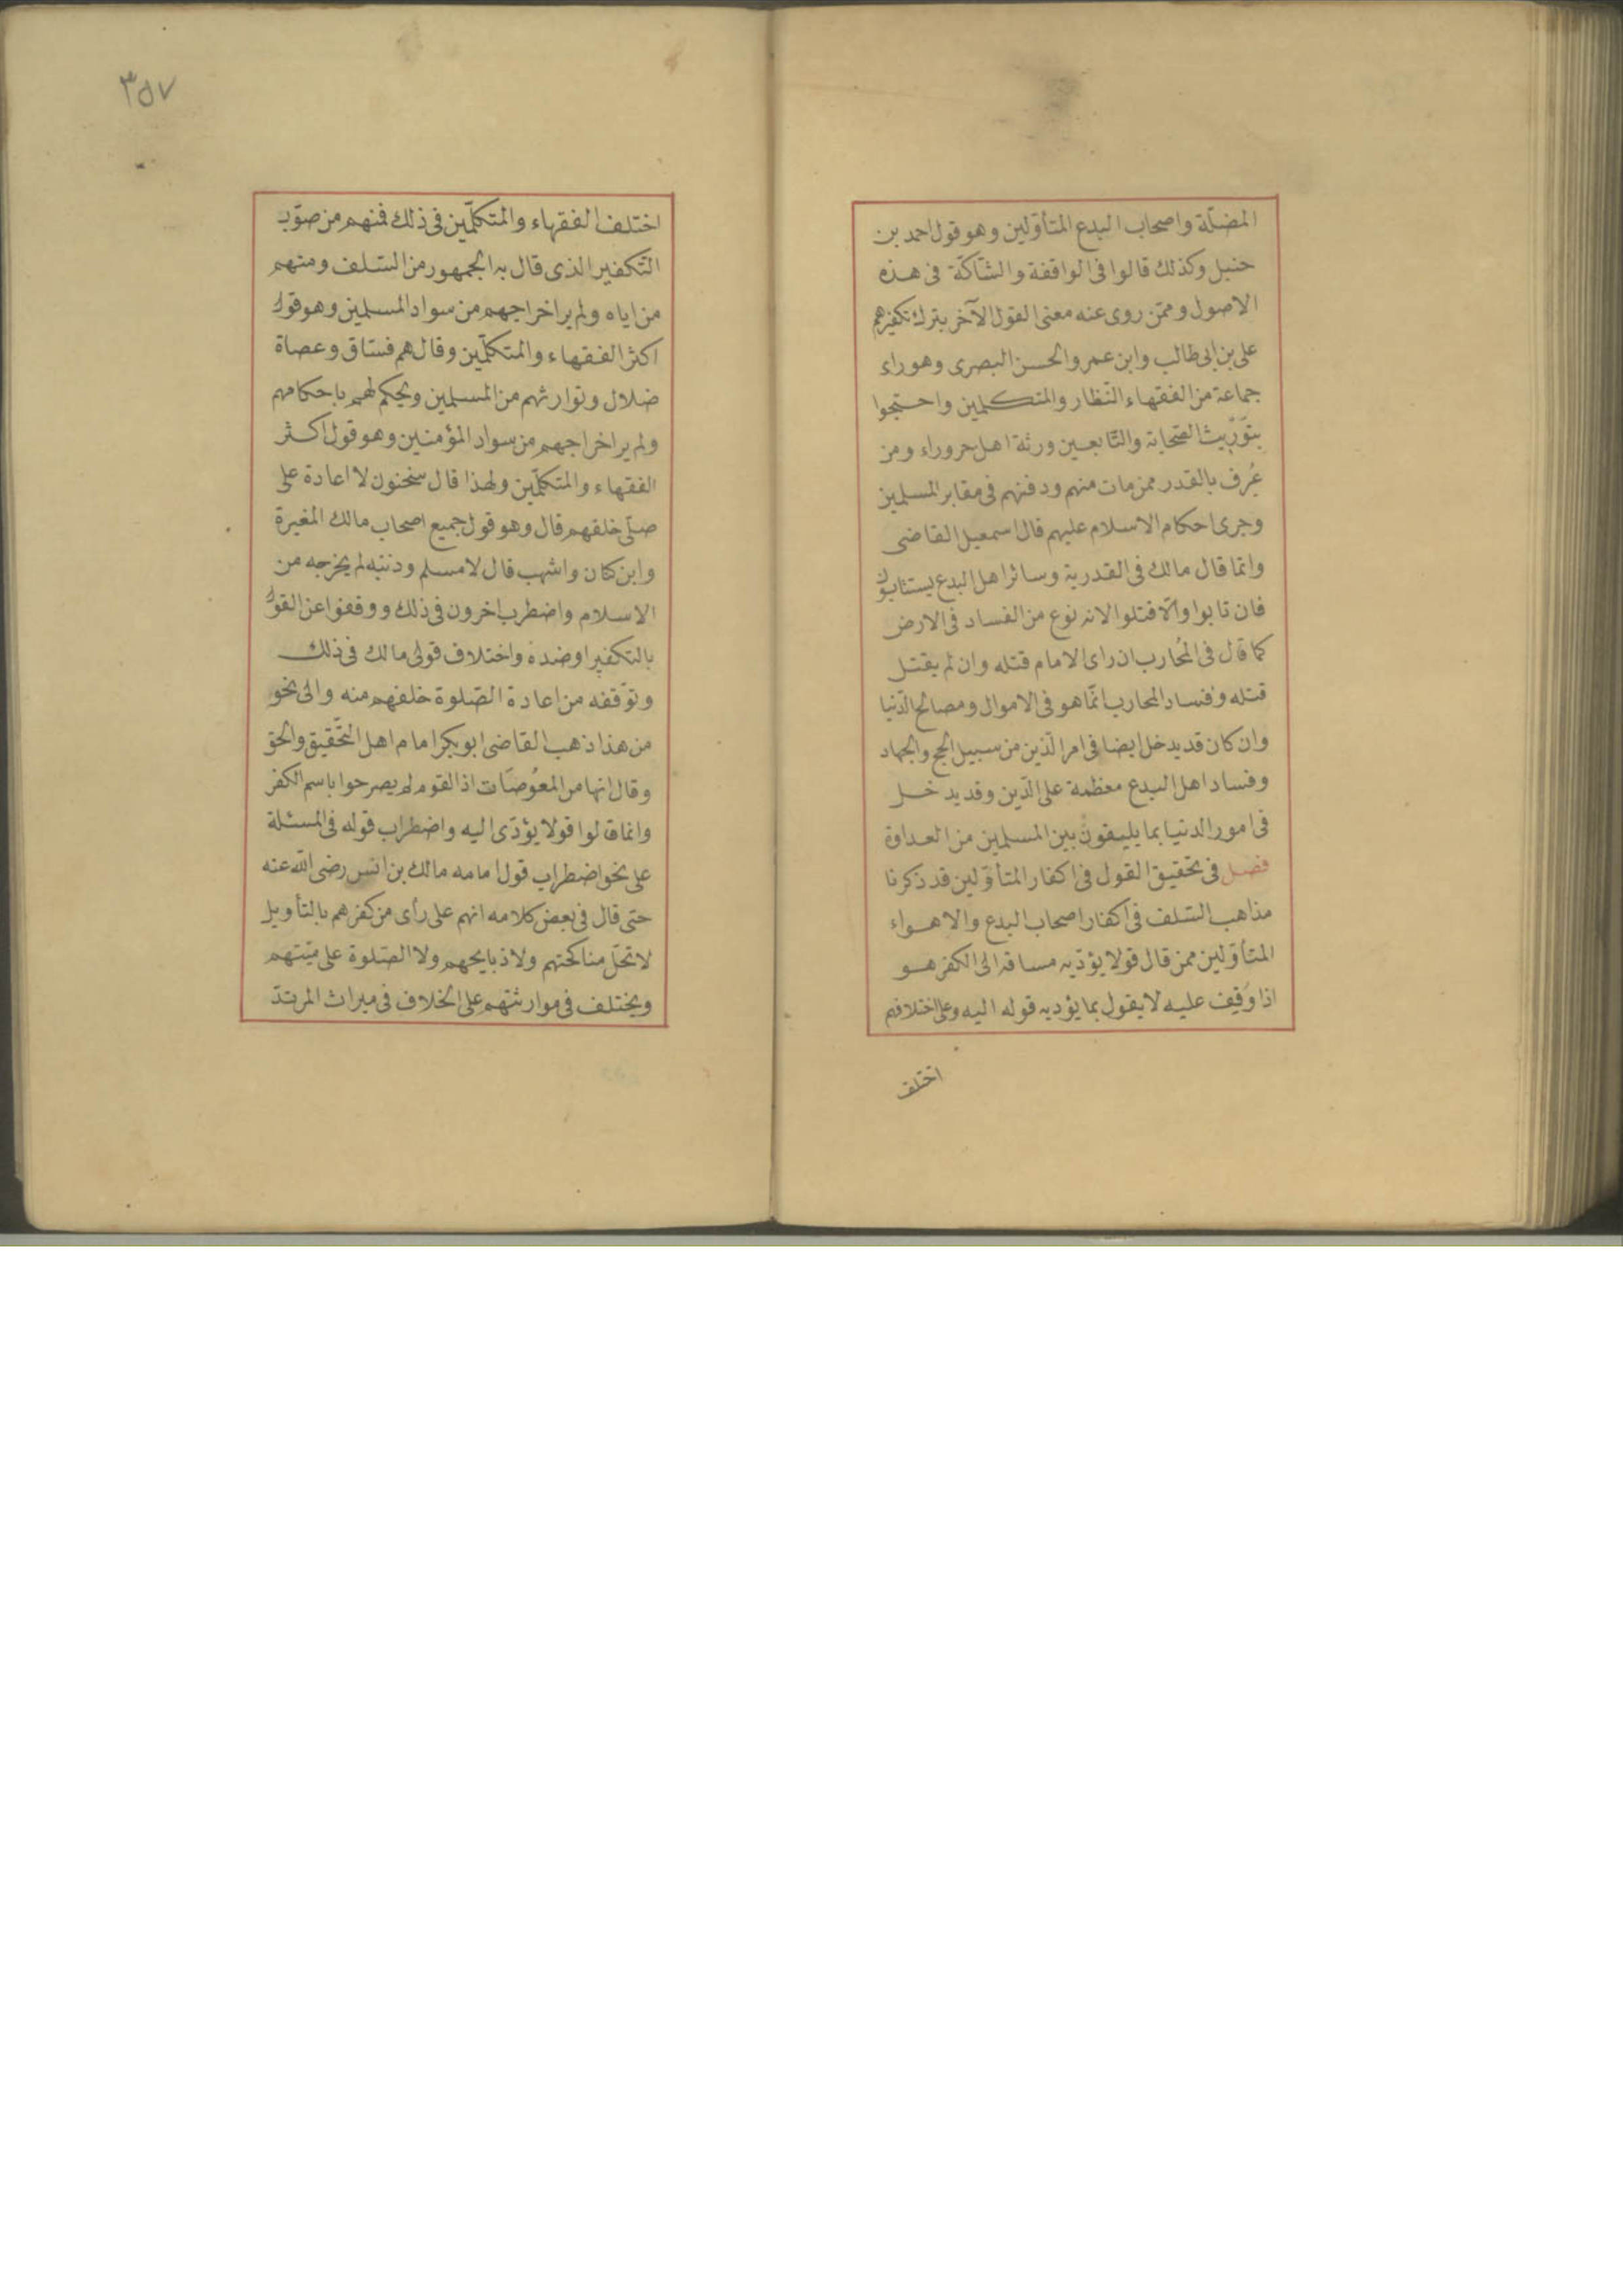 المضلّة واصحاب البدع المتأوّلين وهو قول احمد بن
حنبل وكذلك قالوا فى الواقفة والشّاكّة فى هذه
الاصول وممّن روى عنه معنى القول الآخر بترك تكفيرهم
على بن ابى طالب وابن عمر والحسن البصرى وهو راء
جماعة من الفقهاء النّظار والمتكلمين واحتجوا
بتَورّيث الصّحابة والتّابعين ورثة اهل حروراء ومن
عُرف بالقدر ممن مات منهم ودفنهم فى مقابر المسلمين
وجرى احكام الاسلام عليهم قال اسمعيل القاضى
وانّما قال مالك فى القدرية وسائر اهل البدع يستتابون
فان تابوا والّا قتلوا لانه نوع من الفساد فى الارض
كما قال فى المُحارب ان راى الامام قتله وان لم يقتل
قتله وفساد المحارب انّما هو فى الاموال ومصالح الدّنيا
وان كان قد يدخل ايضا فى امر الدّين من سبيل الحج والجهاد
وفساد اهل البدع معظمة على الدّين وقد يدخل
فى امور الدنيا بما يليقون بين المسلمين من العداوة
فصل فى تحقيق القول فى اكفار المتأوّلين قد ذكرنا
مذاهب السّلف فى اكفار اصحاب البدع والاهواء
المتأوّلين ممن قال قولا يؤدّيه مساقه الى الكفر هو
اذا وُقِف عليه لا يقول بما يؤديه قوله اليه وعلى اختلافهم
اختلف
٣٥٧
اختلف الفقهاء والمتكلّمين فى ذلك فمنهم من صوّب
التّكفير الذى قال به الجمهور من السّلف ومنهم
من اباه ولم ير اخراجهم من سواد المسلمين وهو قول
اكثر الفقهاء والمتكلّمين وقال هم فسّاق وعصاة
ضلال وتوارثهم من المسلمين ويحكم لهم باحكامهم
ولم ير اخراجهم من سواد المؤمنين وهو قول اكثر
الفقهاء والمتكلّمين ولهذا قال سحنون لا اعادة على
صلّى خلفهم قال وهو قول جميع اصحاب مالك المغيرة
وابن كنان واشهب قال لا مسلم وذنبه لم يخرجه من
الاسلام واضطرب اخرون فى ذلك ووقفوا عن القول
بالتكفير او ضده واختلاف قولى مالك فى ذلك
وتوّقفه من اعادة الصّلوة خلفهم منه والى نحو
من هذا ذهب القاضى ابو بكر امام اهل التّحقيق والحق
وقال انها من المعوُصَات اذ القوم لم يصرحوا باسم الكفر
وانما قالوا قولا يؤدّى اليه واضطراب قوله فى المسئلة
على نحو اضطراب قول امامه مالك بن انس رضى الله عنه
حتى قال فى بعض كلامه انهم على رأى من كفرهم بالتأويل
لا تحلّ مناكحتهم ولا ذبايحهم ولا الصّلوة على ميّتهم
ويختلف فى موارثتهم على الخلاف فى ميراث المرتدّ